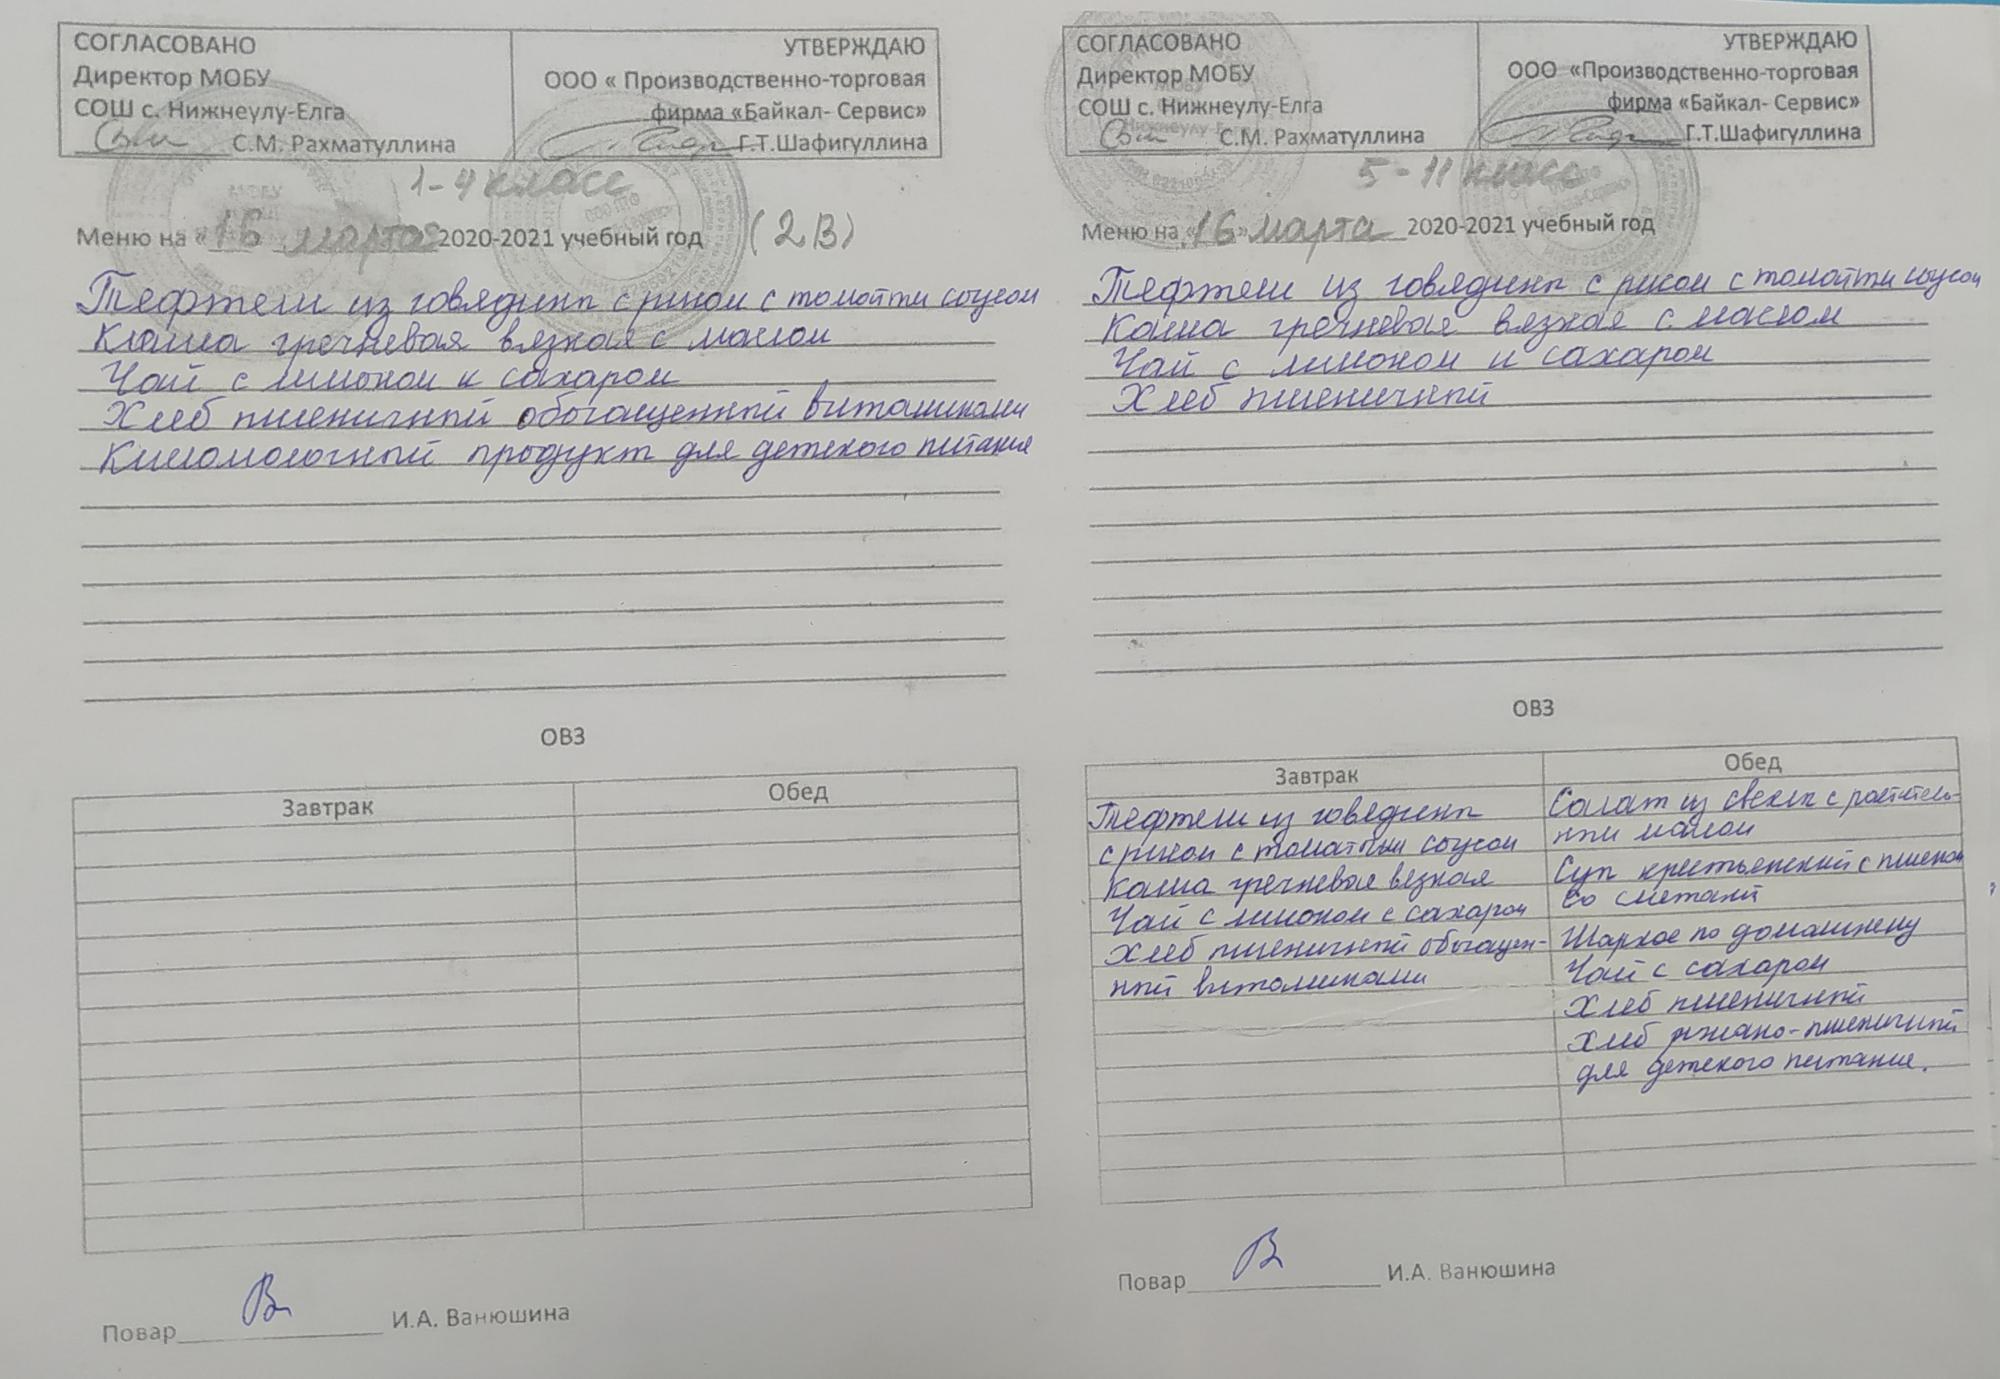 СОГЛАСОВАНО
Директор МОБУ
СОШ с. Нижнеулу-Елга
С.М. Рахматуллина
УТВЕРЖДАЮ
ООО « Производственно-торговая
фирма «Байкал- Сервис»
Г.Т.Шафигуллина
1-4 класс
Меню на «16 марта 2020-2021 учебный год (2В)
Тефтели из говядины с рисом с томатным соусом
Каша гречневая вязкая с маслом
Чай с лимоном и сахаром
Хлеб пшеничный обогащенный витаминами
Кисломолочный продукт для детского питания
ОВЗ
Завтрак Обед
Повар И.А. Ванюшина
СОГЛАСОВАНО
Директор МОБУ
СОШ с. Нижнеулу-Елга
С.М. Рахматуллина
УТВЕРЖДАЮ
ООО «Производственно-торговая
фирма «Байкал- Сервис»
Г.Т.Шафигуллина
5-11 класс
Меню на «16» марта 2020-2021 учебный год
Тефтели из говядины с рисом с томатным соусом
Каша гречневая вязкая с маслом
Чай с лимоном и сахаром
Хлеб пшеничный
ОВЗ
Завтрак
Тефтели из говядины
с рисом с томатным соусом
Каша гречневая вязкая
Чай с лимоном с сахаром
Хлеб пшеничный обогащен-
ный витаминами
Обед
Салат из свеклы с раститель-
ным маслом
Суп крестьянский с пшеном
со сметаной
Жаркое по домашнему
Чай с сахаром
Хлеб пшеничный
Хлеб ржано-пшеничный
для детского питания.
Повар И.А. Ванюшина